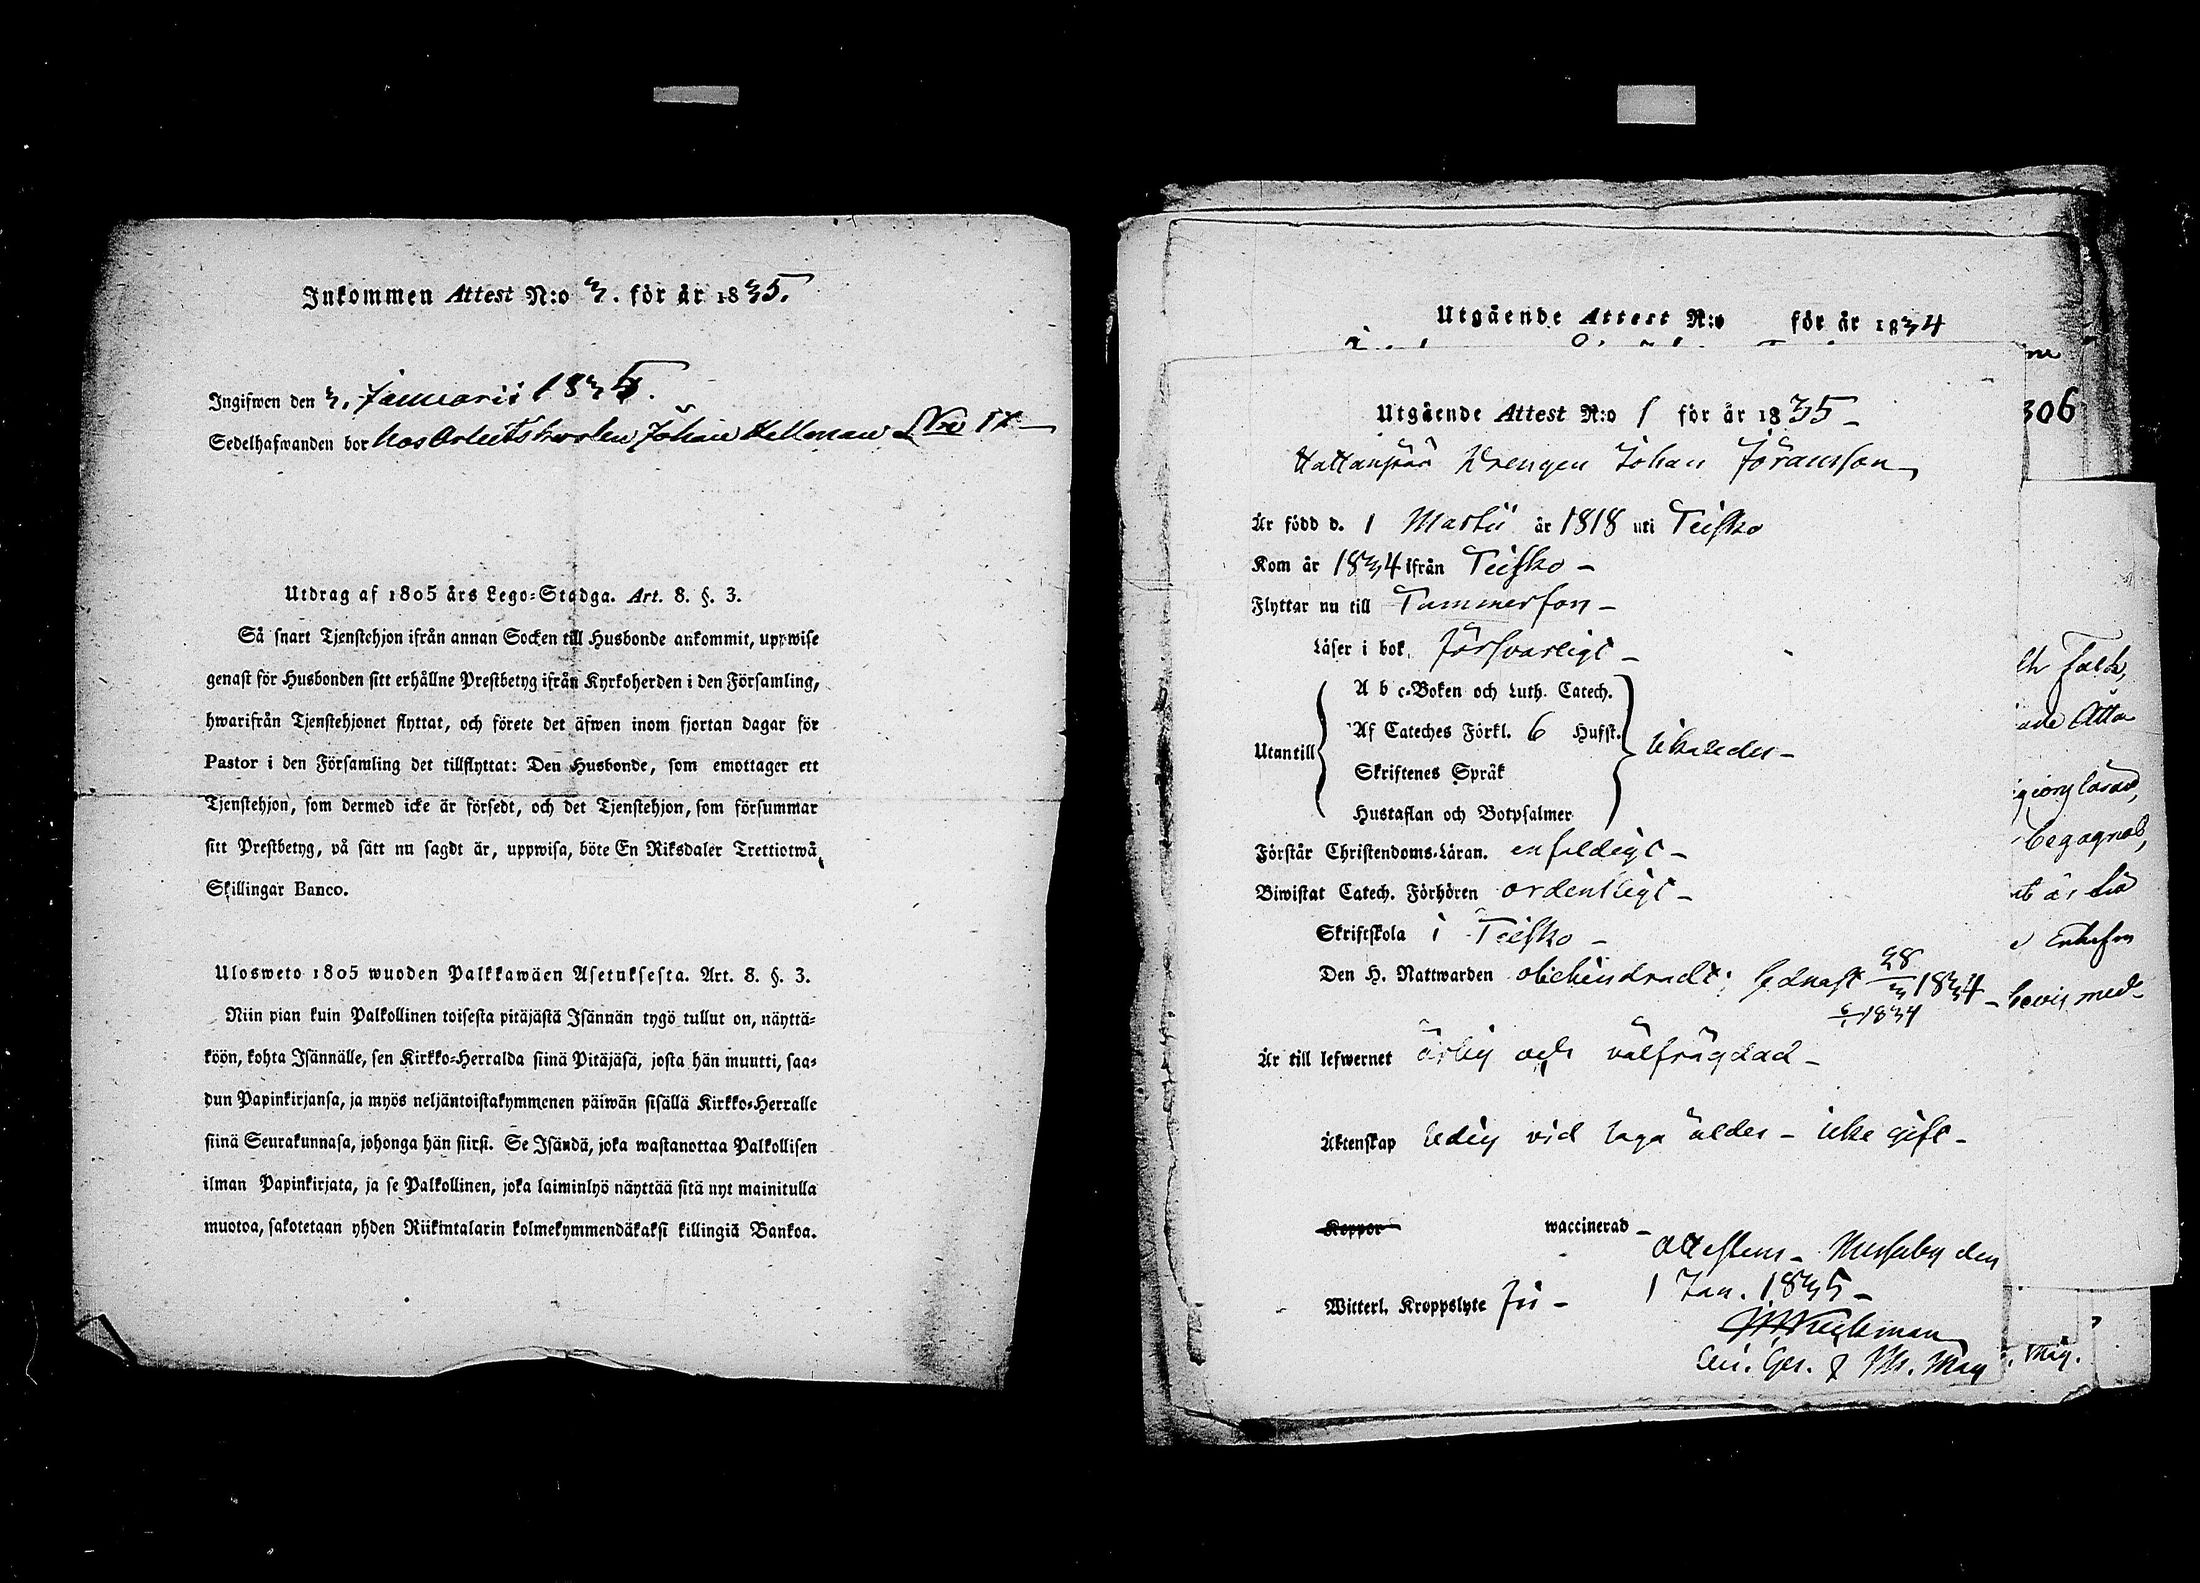 Inkommen Attest N:o 3. för år 1835.
Ingifwen den 3. Januarii 1835.
Sedelhafwanden bor hos Arbetskarlen Johan Hellman
Utdrag af 1805 års Lego-Stadga. Art. 8. §. 3.
Så snart Tjenstehjon ifrån annan Socken till Husbonde ankommit, uppwise
genast för Husbonden sitt erhållne Prestbetyg ifrån Kyrkoherden i den Församling,
hwarifrån Tjenstehjonet flyttat, och förete det äfwen inom fjortan dagar för
Pastor i den Församling det tillflyttat: Den Husbonde, som emottager ett
Tjenstehjon, som dermed icke är försedt, och det Tjenstehjon, som försummar
sitt Prestbetyg, på sätt nu sagdt är, uppwisa, böte En Riksdaler Trettiotwå
Skillingar Banco.
Ulosweto 1805 wuoden Palkkawäen Asetuksesta. Art. 8. §. 3.
Niin pian kuin Palkollinen toisesta pitäjästä Isännän tygö tullut on, näyttä-
köön, kohta Isännälle, sen Kirkko-Herralda siinä Pitäjäsä, josta hän muutti, saa-
dun Papinkirjansa, ja myös neljäntoistakymmenen päiwän sisällä Kirkko-Herralle
siinä Seurakunnasa, johonga hän siirsi. Se Isändä, joka wastanottaa Palkollisen
ilman Papinkirjata, ja se Palkollinen, joka laiminlyö näyttää sitä nyt mainitulla
muotoa, sakotetaan yhden Riikintalarin kolmekymmendäkaksi killingiä Bankoa.
Utgående Attest N:o för år 1834
Utgående Attest N:o 1 för år 1835 -
Drengen Johan Jöransson
Är född d. 1 Martii år 1818 uti Teisko
Kom år 1834 ifrån Teisko -
Flyttar nu till Tammerfors -
Läser i bok. försvarligt -
A b c-Boken och Luth. Catech.
Af Cateches Förkl. 6 Hufst.
Utantill likaledes -
Skriftenes Språk
Hustaflan och Botpsalmer
Förstår Christendoms-Läran. enfaldigt -
Biwistat Catech. Förhören ordentligt -
Skriftskola i Teisko -
Den H. Nattwarden obehindradt; sednast 28/3 1834 -
6/1 1834
Är till lefwernet ärlig och välfrägdad -
Äktenskap ledig vid laga ålder - icke gift -
Koppor waccinerad -
attesteras - Messuby den
Witterl. Kroppslyte fri - 1 Jan. 1835 -
306
begagnat,
bevis med-